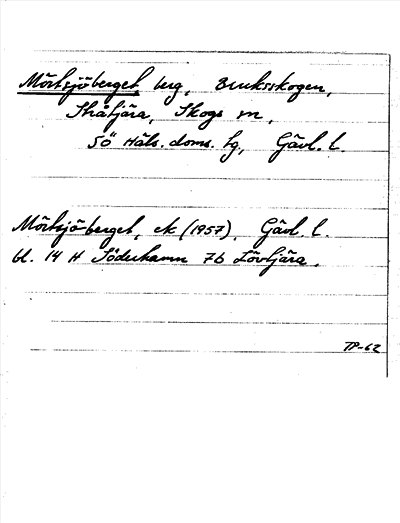 Mörtsjöberget, berg, Bruksskogen,
Stråtjära, Skogs sn,
Sö Häls. doms. tg, Gävl. l.
Mörtsjöberget, ek (1957), Gävl. l.
bl. 14 H Söderhamn 7b Lövtjära.
TP-62